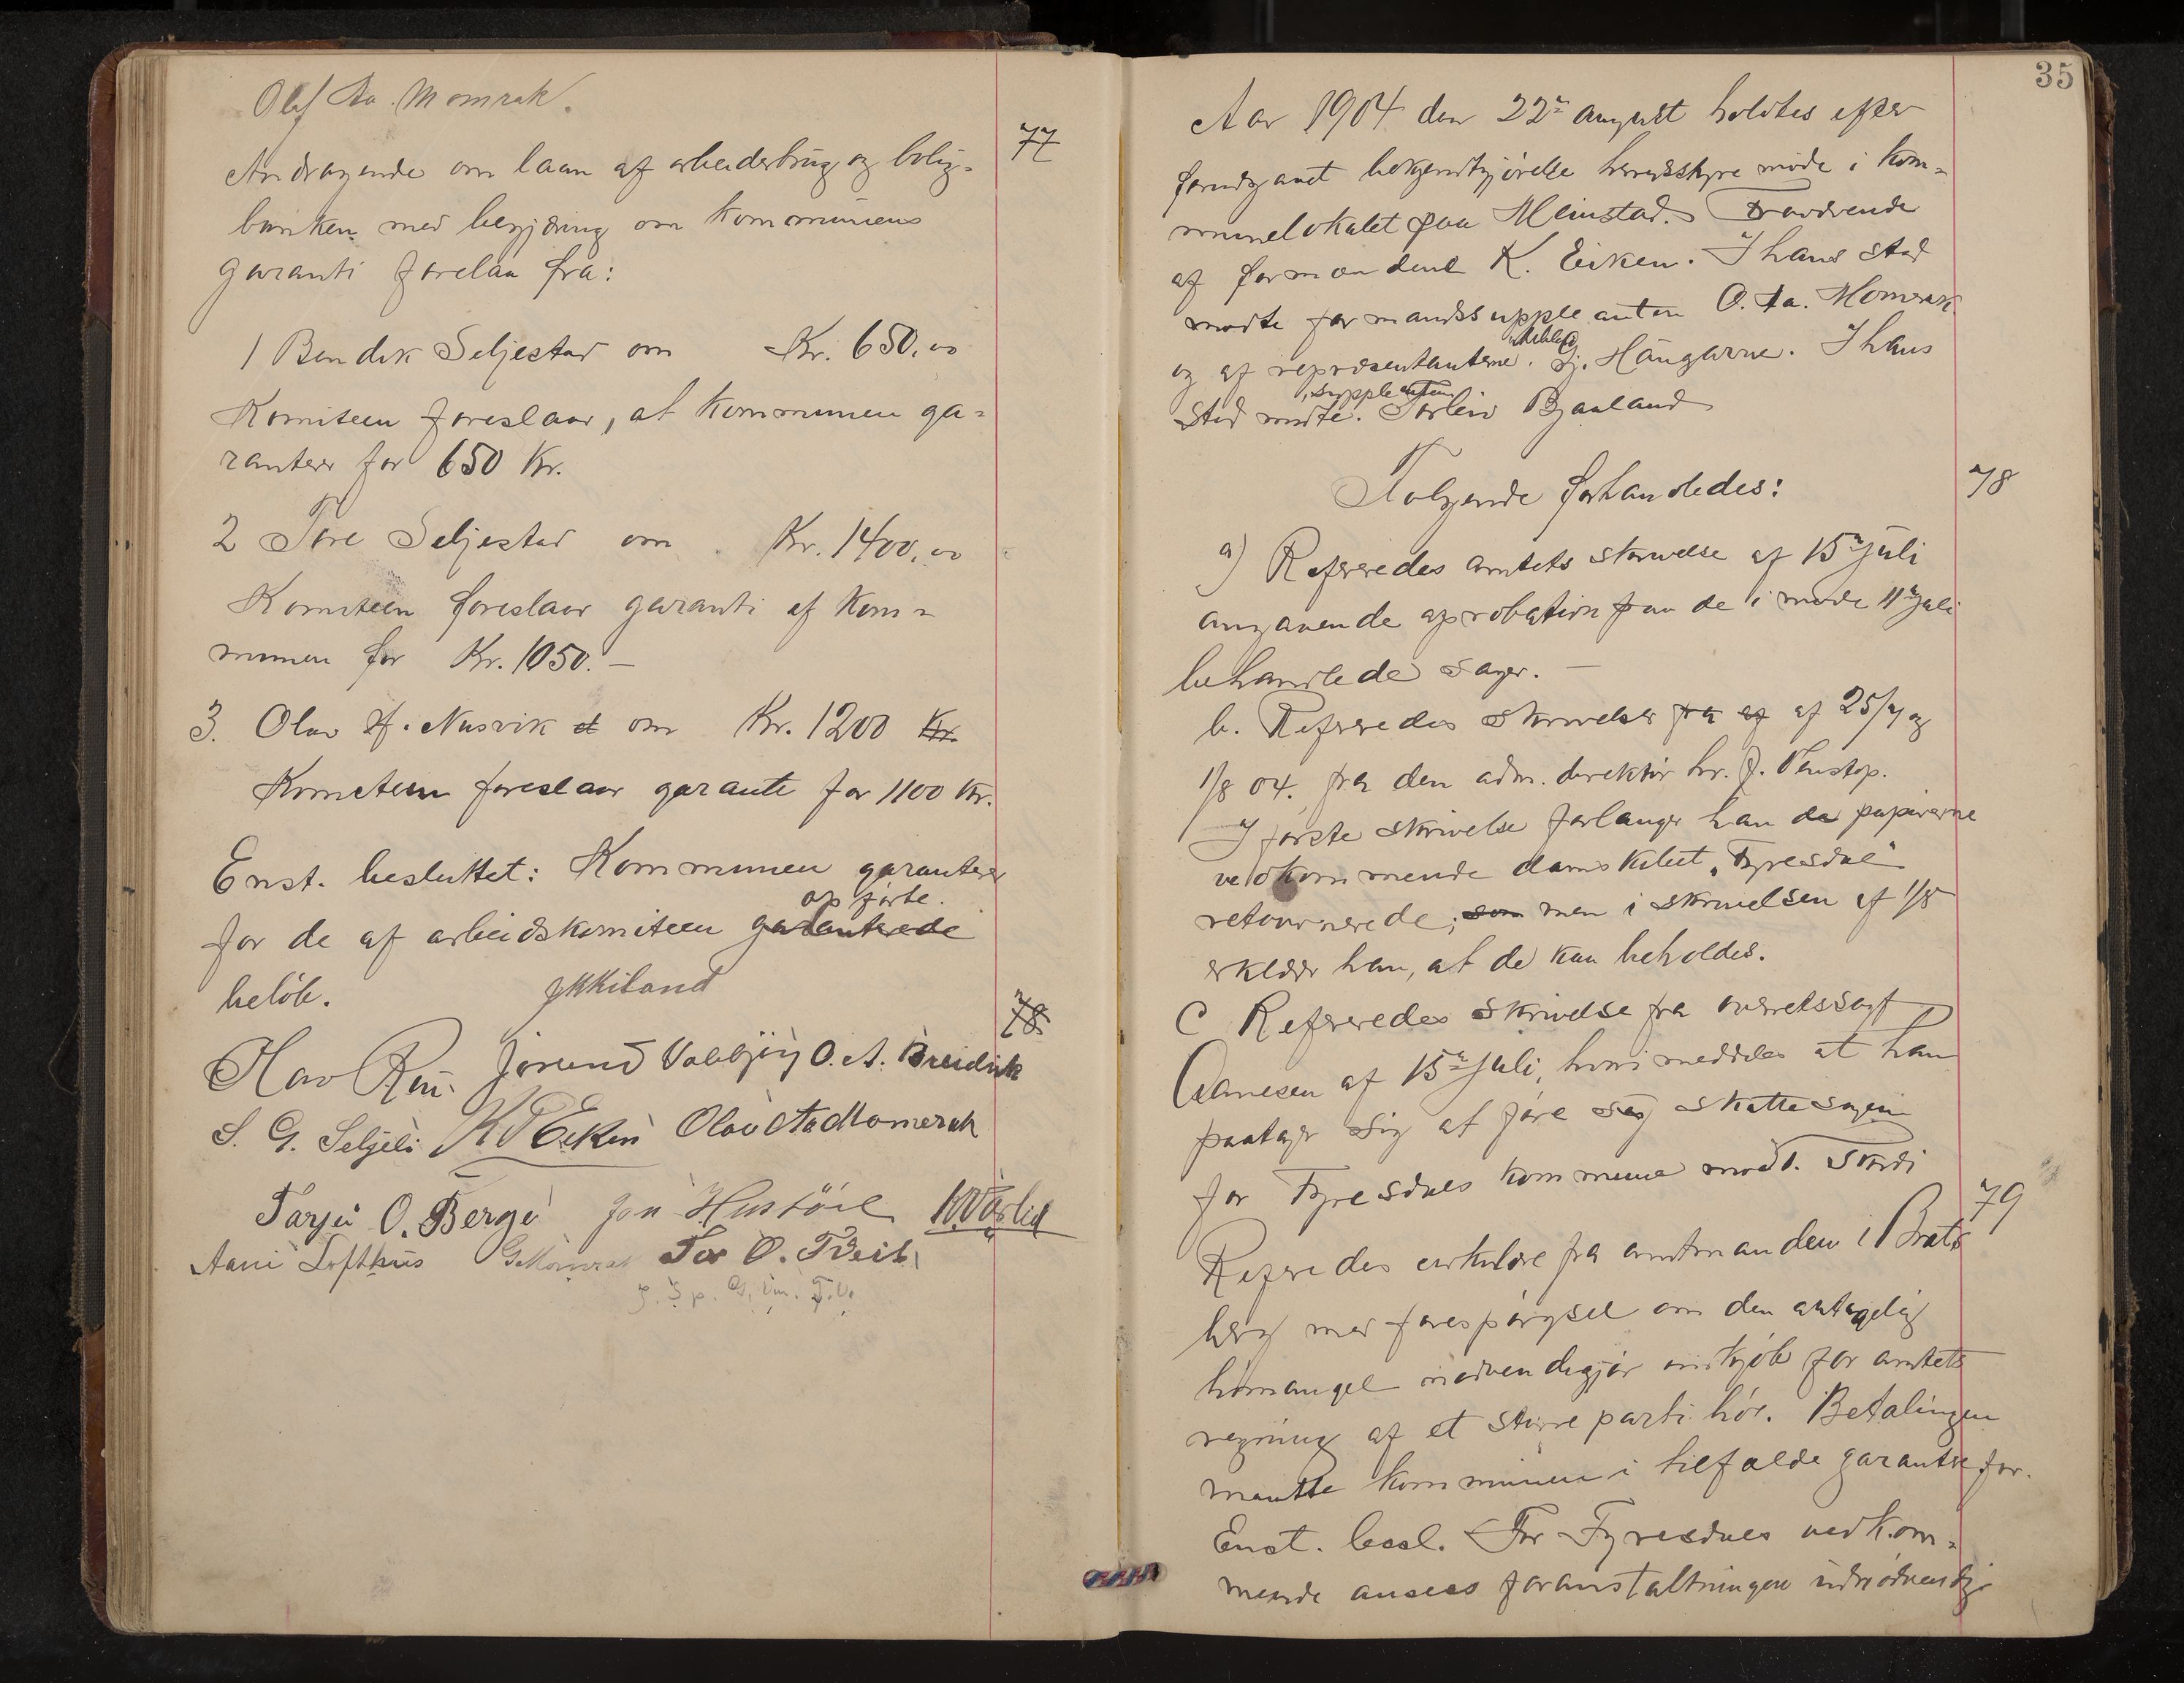 Olaf Aa. Momrak.
77
Andragende om laan af arbeiderbrug og bolig-
banken med begjæring om kommunens
garanti forelaa fra:
1 Bendik Seljestad om Kr. 650,00
Komiteen foreslaar, at kommunen ga-
ranterer for 650 Kr.
2 Tore Seljestad om Kr. 1400,00
Komiteen foreslaar garanti af kom-
munen for Kr. 1050.-
3. Olav H. Nusvik et om Kr. 1200 Kr.
Komiteen foreslaar garanti for 1100 Kr.
Enst. besluttet: Kommunen garanterer
opførte.
for de af arbeidskomiteen garanterede
beløb.
78
Olav Rui. Jørund O. A. Breidvik
S. G. Seljeli K T Eiken Olav Aa Momrak
Tarjei O. Berge Jon K. Vaslid
Aani Lofthus G Momrak Tor O. Tveit
35
Aar 1904 den 22de august holdtes efter
forudgaaet bekjendtgjørelse herredsstyremøde i kom-
munelokalet paa Meinstad. Fraværende
af formændene K. Eiken. I hans sted
mødte formandssuppleanten O. Aa. Momrak
og af repræsentanterne G. Haugarne. I hans
suppleanten
sted mødte. Torleiv Bjaaland
Følgende forhandledes:
78
a) Refereredes amtets skrivelse af 15de juli
angaaende aprobation paa de i møde 11te juli
behandlede sager. -
b. Refereredes skrivelser fra af af 25/7 og
1/8 04. fra den adm. direktør hr. J. Venstøp.
I første skrivelse forlanger han de papirerne
vedkommende damskibet "Fyresdal"
retournerede; som men i skrivelsen af 1/8
erklær han, at de kan beholdes.
C Refereredes skrivelse fra overretssagf
Aanesen af 15de juli, hvori meddeles at han
paatager sig at føre sag skattesagen
for Fyresdals kommune mod T. Skrdi
79
Refereredes cirkulære fra amtmanden i Brats
berg med forespørgsel om den antagelig
hømangel nødvendiggjør indkjøb for amtets
regning af et større parti hø. Betalingen
maatte kommunen i tilfælde garantere for.
Enst. besl. For Fyresdals vedkom-
mende ansees foranstaltningen unødvendig